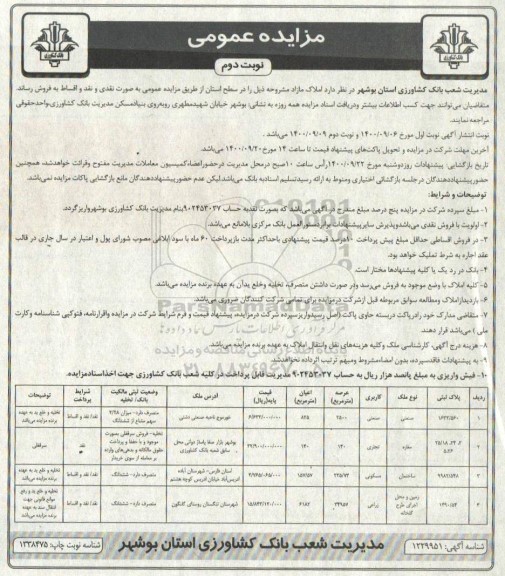 مزایده عمومی
نوبت دوم
مدیریت شعب بانک کشاورزی استان بوشهر در نظر دارد املاک مازاد مشروحه ذیل را در سطح استان از طریق مزایده عمومی به صورت نقدی و نقد و اقساط به فروش رساند.
متقاضیان می‌توانند جهت کسب اطلاعات بیشتر ودریافت اسناد مزایده همه روزه به نشانی: بوشهر خیابان شهیدمطهری روبه‌روی بنیادمسکن مدیریت بانک کشاورزی،واحدحقوقی
مراجعه نمایند.
نوبت انتشار آگهی نوبت اول مورخ ۱۴۰۰/۰۹/۰۶ و نوبت دوم ۱۴۰۰/۰۹/۰۹ می‌باشد .
آخرین مهلت شرکت در مزایده و تحویل پاکت‌های پیشنهاد قیمت تا ساعت ۱۴ مورخ۱۴۰۰/۰۹/۲۰ می‌باشد.
تاریخ بازگشایی پیشنهادات روزدوشنبه مورخ ۱۴۰۰/۰۹/۲۲رأس ساعت ۱۰صبح درمحل مدیریت درحضوراعضاءکمیسیون معاملات مدیریت مفتوح وقرائت خواهدشد، همچنین
حضورپیشنهاددهندگان درجلسه بازگشائی اختیاری ومنوط به ارائه رسیدتسلیم اسنادبه بانک می‌باشد.لیکن عدم حضورپیشنهاددهندگان مانع بازگشایی پاکات مزایده نمی‌باشد.
توضیحات و شرایط:
۱- مبلغ سپرده شرکت در مزایده پنج درصد مبلغ مندرج درآگهی می‌باشد که بصورت نقدبه حساب ۹۰۲۴۵۳۰۳۷بنام مدیریت بانک کشاورزی بوشهرواریزگردد.
۲- اولویت با فروش نقدی می‌باشدوپذیرش سایرپیشنهادات برابردستورالعمل بانک مرکزی بلامانع می‌باشد.
۳- در فروش اقساطی حداقل مبلغ پیش پرداخت ۱۰درصد قیمت پیشنهادی باحداکثر مدت بازپرداخت ۶۰ ماه با سود ابلاغی مصوب شورای پول و اعتبار در سال جاری در قالب
عقد اجاره به شرط تملیک خواهد بود.
۴- بانک در رد یک یا کلیه پیشنهادها مختار است.
۵- کلیه املاک با وضع موجود به فروش می‌رسد ودر صورت داشتن متصرف، تخلیه وخلع یدآن به عهده برنده مزایده می‌باشد.
۶- بازدیدازاملاک ومطالعه سوابق مربوطه قبل ازشرکت درمزایده برای تمامی شرکت کنندگان ضروری می‌باشد.
۷- متقاضی مدارک خود رادرپاکت دربسته حاوی پاکت (اصل رسیدواریزسپرده شرکت درمزایده، پیشنهاد قیمت و فرم شرایط شرکت در مزایده واقرارنامه، فتوکپی شناسنامه وکارت
ملی) می‌باشد قرار دهند.
۸- هزینه درج آگهی، کارشناسی ملک وکلیه هزینه‌های نقل وانتقال املاک به عهده برنده مزایده می‌باشد.
۹- به پیشنهادات فاقدسپرده، بدون امضاءمشروط ومبهم ترتیب اثرداده نخواهدشد.
۱۰- فیش واریزی به مبلغ پانصد هزار ریال به حساب ۹۰۲۴۵۳۰۳۷ مدیریت قابل پرداخت در کلیه شعب بانک کشاورزی جهت اخذاسنادمزایده.
ردیف پلاک ثبتی نوع ملک کاربری عرصه (مترمربع) اعیان (مترمربع) قیمت پایه(ریال) آدرس ملک وضعیت ثبتی مالکیت بانک/ تخلیه شرایط پرداخت توضیحات
۱ صنعتی صنعتی ۲۵۰۰ ۸۲۵ خورموج ناحیه صنعتی دشتی نقد/ نقد و اقساط تخلیه و خلع ید به عهده برنده مزایده می‌باشد
۲ مغازه تجاری ۱۴۰ ۱۴۰ بوشهر بازار صفا پاساژ دولتی محل سابق شعبه بانک کشاورزی نقد سرقفلی
۳ ساختمان مسکونی استان فارس- شهرستان آباده نقد/ نقد و اقساط تخلیه و خلع ید به عهده برنده مزایده می‌باشد
۴ زمین و محل اجرای طرح گلخانه زراعی شهرستان تنگستان روستای گلنگون متصرف دارد- ششدانگ نقد/ نقد و اقساط
شناسه آگهی: ۱۲۲۹۹۵۱
مدیریت شعب بانک کشاورزی استان بوشهر
شناسه نوبت چاپ: ۱۳۳۸۴۷۵